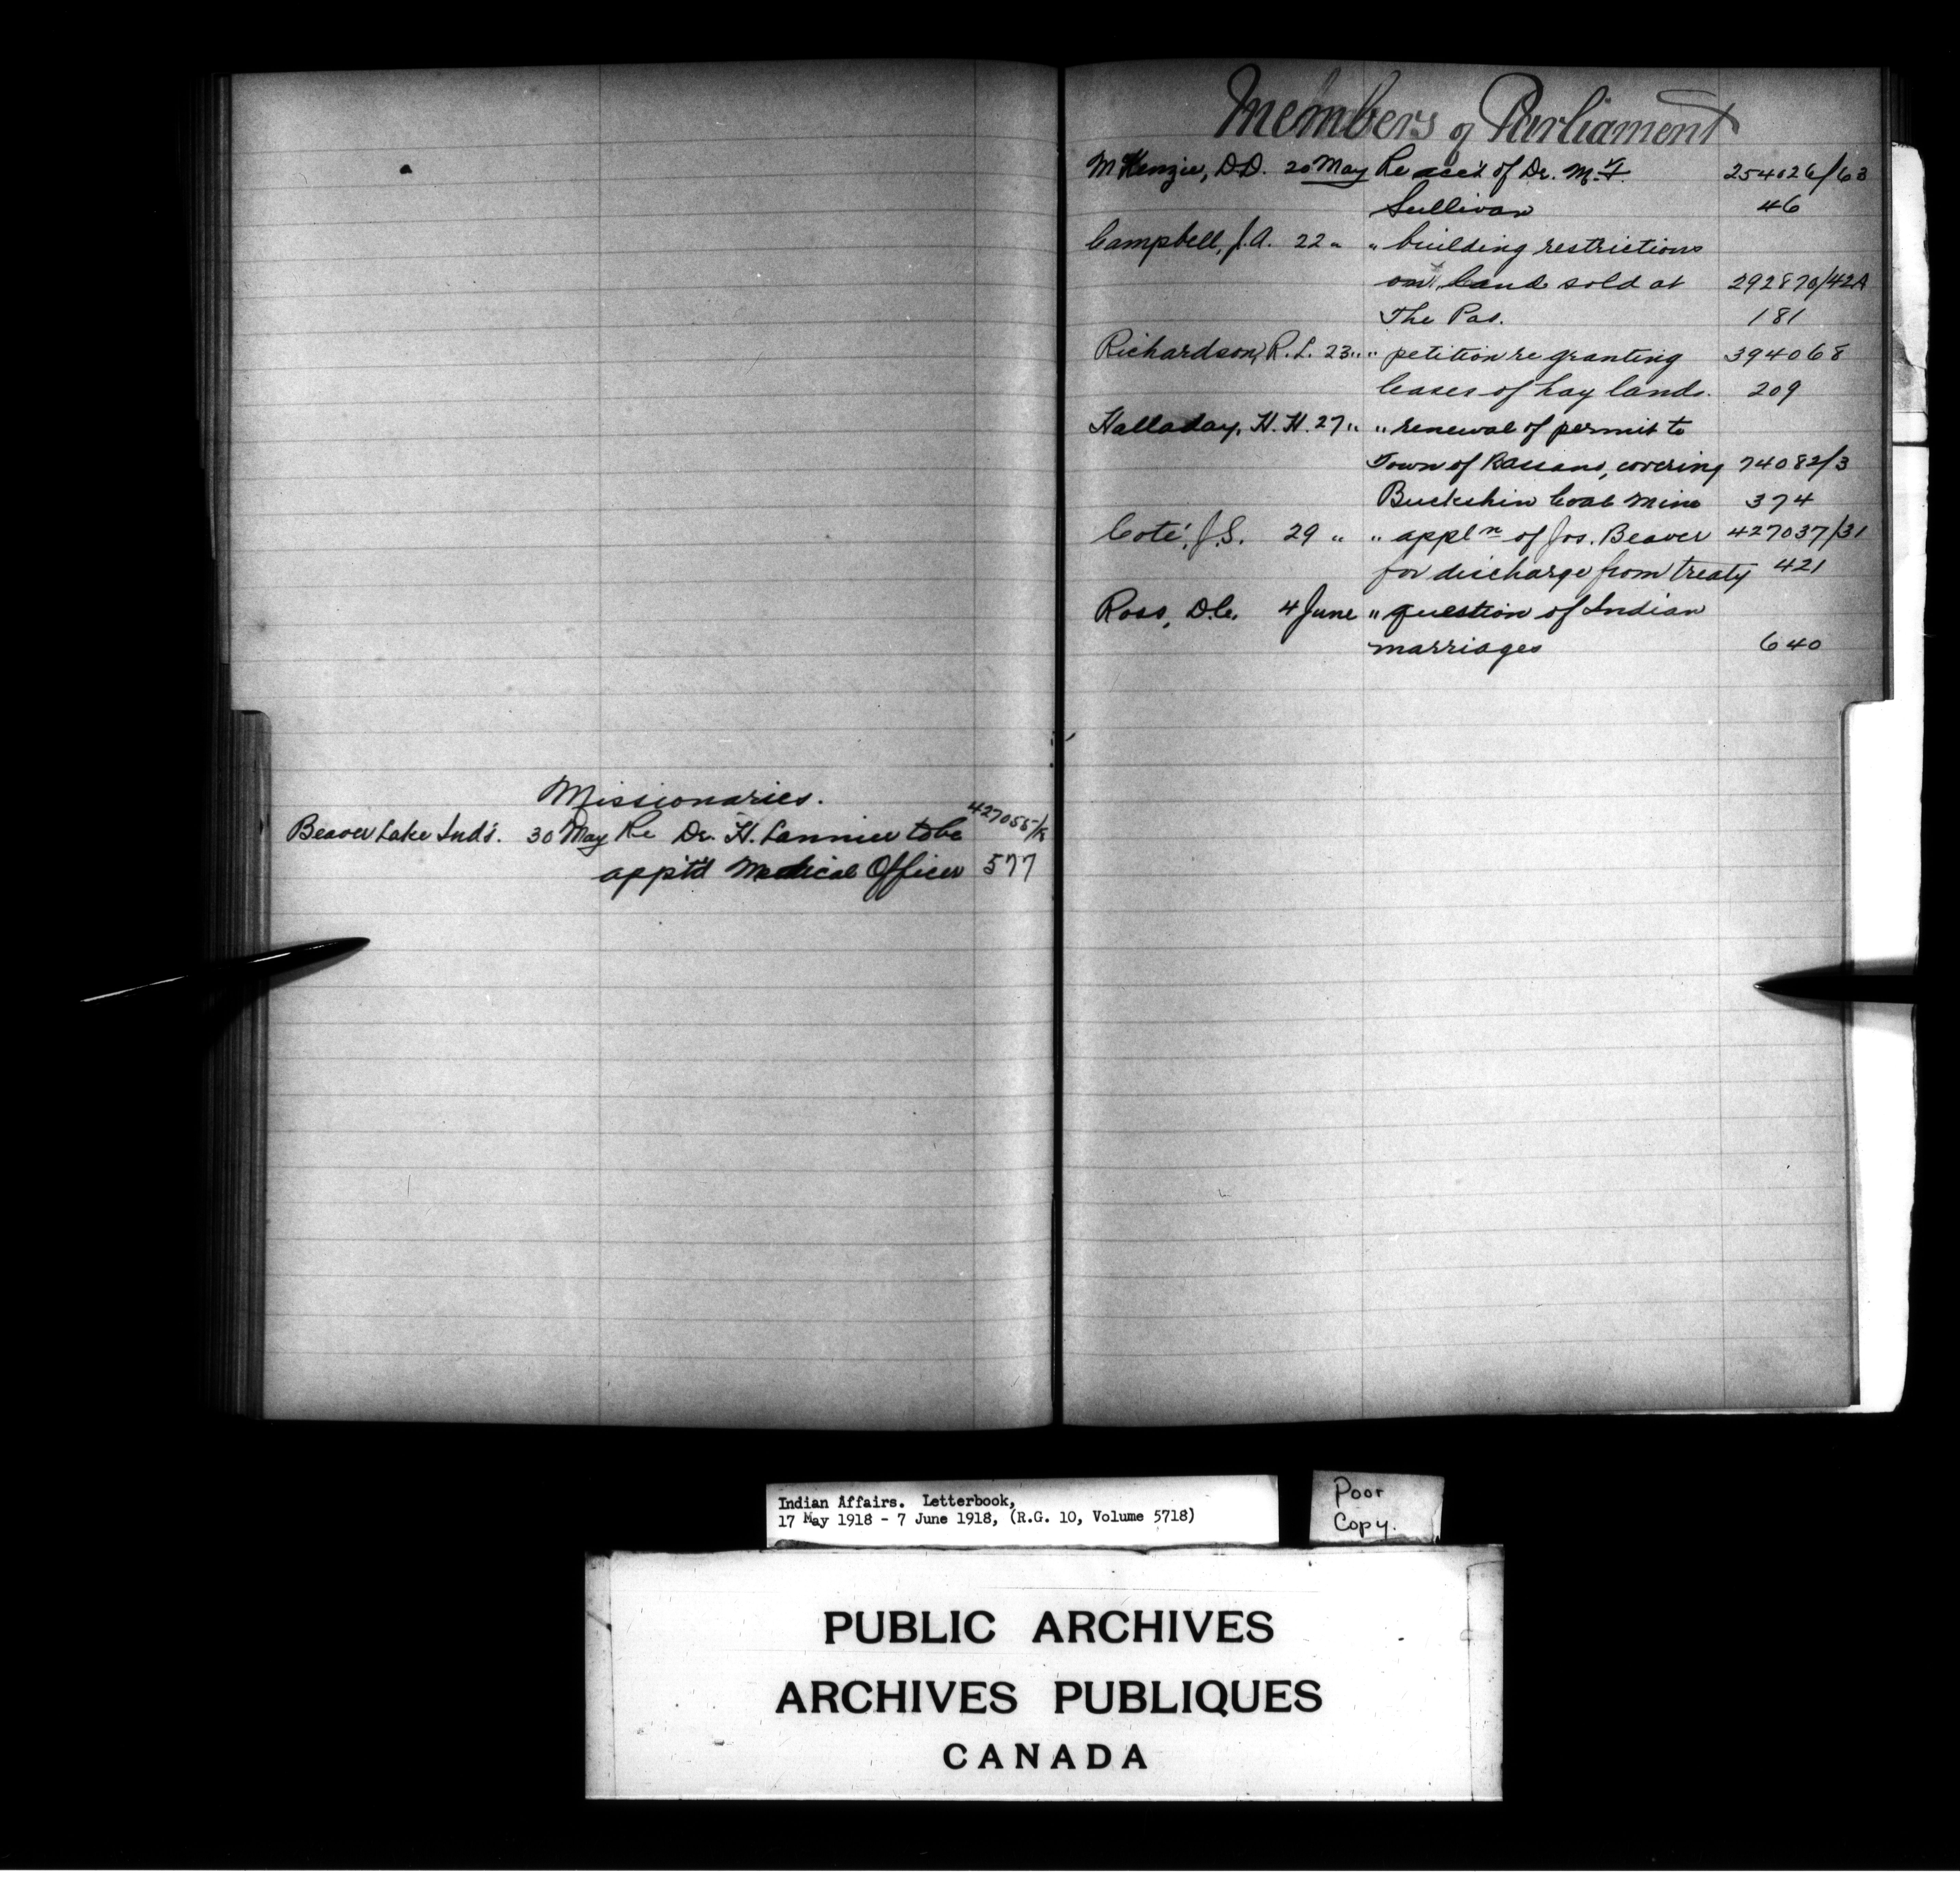 Missionaries.
Beaver Lake Inds. 30 May Re Dr. H. Lannier to be 427055/
app'td Medical Officer 577
Members of Parliament
McKenzie, D.D. 20 May Re acc't of Dr. M. T. 254026/63
Sullivan 46
Campbell, J.A. 22 " " building restrictions
on land sold at 292870/42A
The Pas. 181
Richardson, R.L. 23 " " petition re granting 394068
leases of hay lands. 209
Halladay, H.H. 27 " " renewal of permit to
Town of Bassano, covering 74082/3
Buckskin Coal Mine 374
Coté, J.S. 29 " " appln of Jos. Beaver 427037/31
for discharge from treaty 421
Ross, D.C. 4 June " question of Indian
marriages 640
Indian Affairs. Letterbook,
17 May 1918 - 7 June 1918, (R.G. 10, Volume 5718)
Poor
Copy.
PUBLIC ARCHIVES
ARCHIVES PUBLIQUES
CANADA